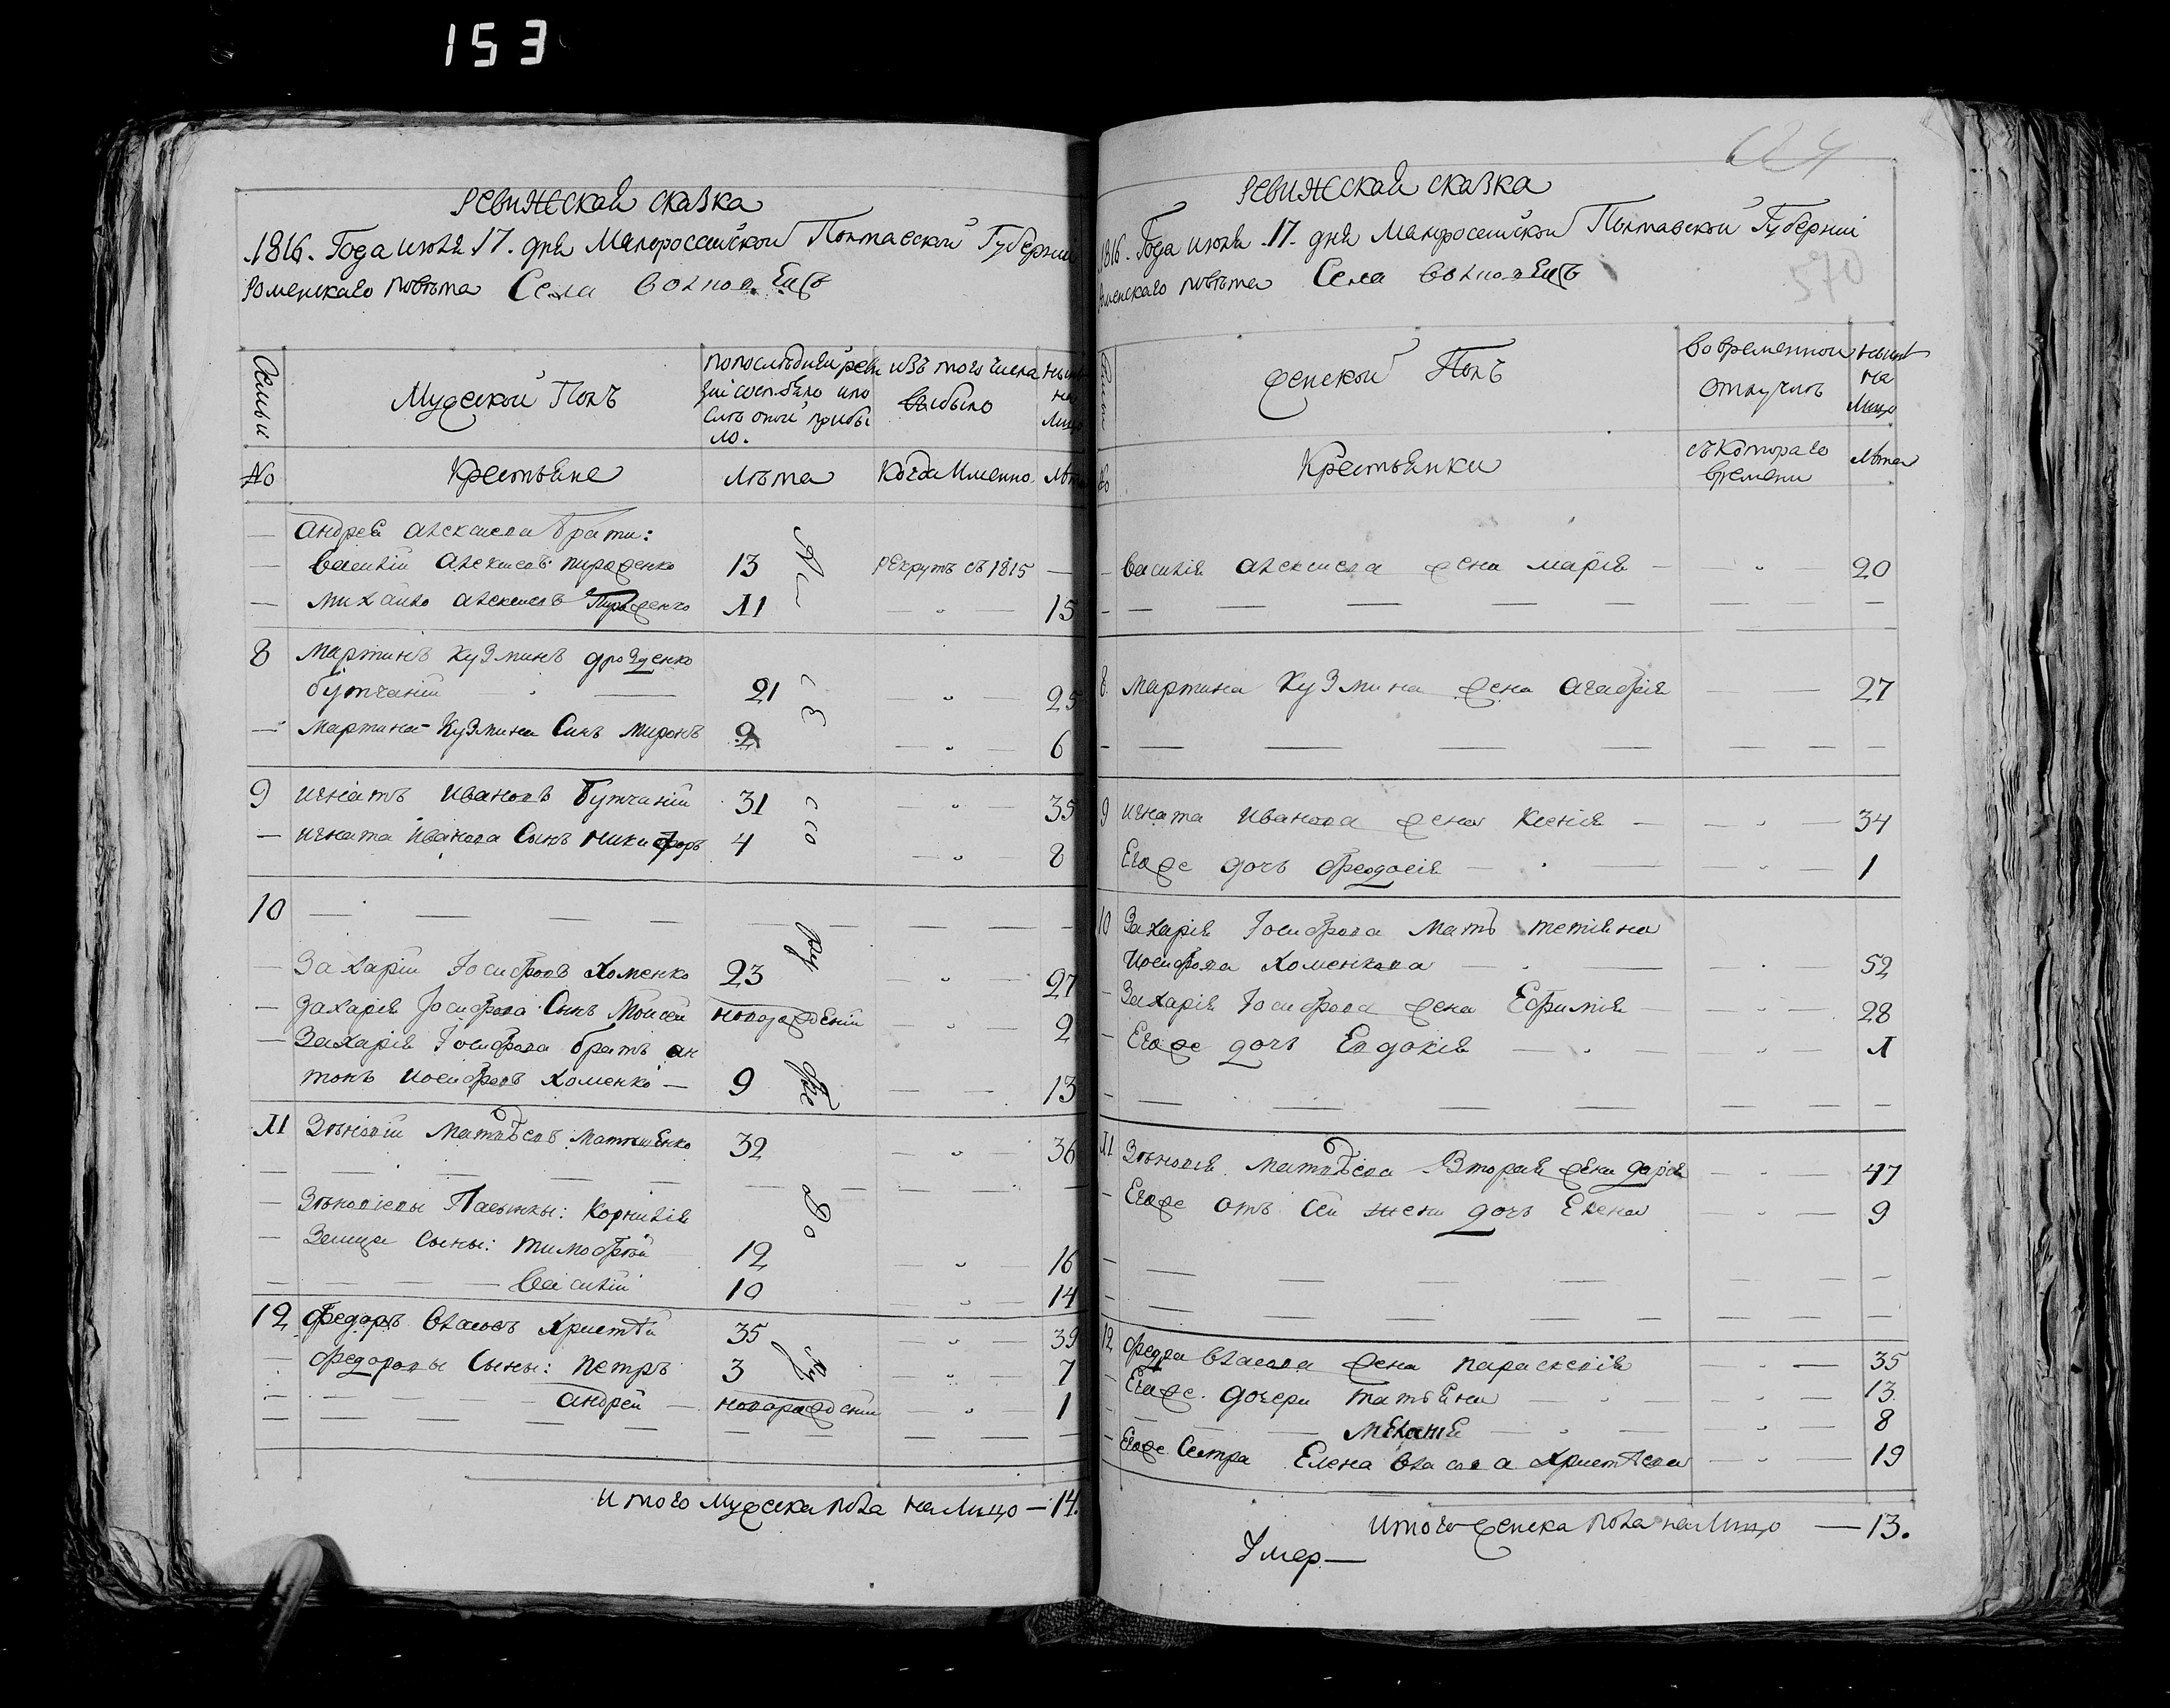 153
Ревижской сказка
1816. Года июля 17. дня Малороссийской Полтавской Губернии
Роменскаго повѣта Села
Мужеской Полъ
выбыло
№
Крестьяне
Лѣта
Когда Именно
Лѣта
— Андрея Алексиева брати:
— Василий Алексиевъ 13 рекрутъ съ 1815 —
— Михайло Алексиевъ 11 — 15
8 Мартинъ Кузминъ дрозденко
21 — 25
— Мартина Кузмина Синъ Миронъ 2 — 6
9 Игнатъ Ивановъ 31 — 35
— Игната Иванова Сынъ Никифоръ 4 — 8
10
— Захарий Іосифовъ Хоменко 23 — 27
— Захарія Іосифова Сынъ Мойсей новорожденій — 2
— Захарія Іосифова братъ Ан
тонъ Иосифовъ Хоменко — 9 — 13
11 Зѣновій Матвѣевъ Матвиенко 32 — 36
— Зѣновіевы Пасынки: Корнилія
— Заица Сыны: Тимофей 12 — 16
Василий 10 — 14
12 Федоръ Власовъ 35 — 39
— Федоровы Сыны: Петръ 3 — 7
Андрей — новорожденій — 1
Итого мужеска пола налицо — 14.
Ревижской сказка
1816. Года июля 17. дня Малороссийской Полтавской Губерніи
Роменскаго повѣта Села
570
Женской Полъ
во временной
отлучкѣ
на
лицо
№
Крестьянки
съ котораго
времени
Лѣта
— Василія Алексиева жена Марія — 20
8 Мартина Кузмина жена Агафія — 27
9 Игната Иванова жена Ксенія — 34
Егоже дочь Феодосія — 1
10 Захарія Іосифова Мать Тетіяна
Иосифова Хоменкова — 52
— Захарія Іосифова жена Ефимія — 28
— Егоже дочь Евдокія — 1
11 Зѣновія Матвѣева Вторая жена Дарія — 47
— Егоже отъ сей жени дочь Елена — 9
12 Федора Власова жена Параскевія — 35
— Егоже дочери Татьяна — 13
Меланія — 8
— Егоже Сестра Елена Власова — 19
Итого женска пола налицо — 13.
Умер —